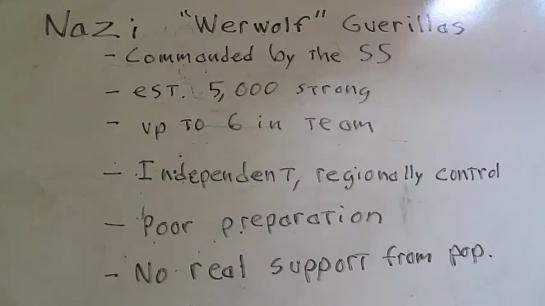 Nazi "Werwolf" Guerillas
- Commanded by the SS
- est. 5,000 strong
- up to 6 in team
- Independent, regionally control
- Poor preparation
- No real support from pop.